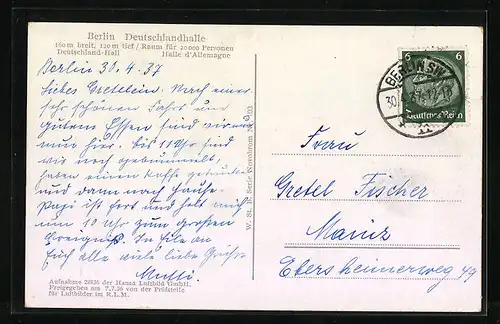 Berlin Deutschlandhalle
160 m breit, 120 m tief / Raum für 20 000 Personen
Deutschland-Hall Halle d'Allemagne
Berlin 30.4.37
Liebes Gretelein. Nach einer
sehr schönen Fahrt und
gutem Essen sind wir
nun hier. Bis 11 Uhr sind
wir noch gebummelt,
haben einen Kaffe getrunken
und dann nach Hause.
Papi ist fort und holt mich
um 10 Uhr zum großen
Ereignis. In Eile an
Euch alle viele liebe Grüße
Mutti.
Aufnahme der Hansa Luftbild GmbH.
Freigegeben am 7.7.36 von der Prüfstelle
für Luftbilder im R.L.M.
W. St. Serie
BERLIN SW
30.
6 6
Deutsches Reich
Frau
Gretel Fischer
Mainz
Ebersheimerweg 49